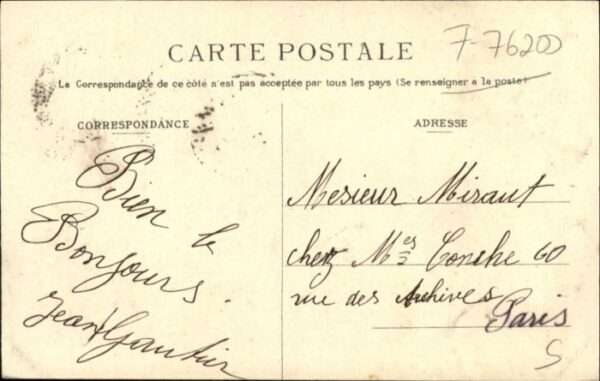 7-76200
CARTE POSTALE
La Correspondance de ce côté n'est pas acceptée par tous les pays (Se renseigner a la poste)
CORRESPONDANCE
Bien le
Bonjours.
Jean Gautier
ADRESSE
Mesieur Miraut
chez Mes Conche 60
rue des Archives
Paris
S